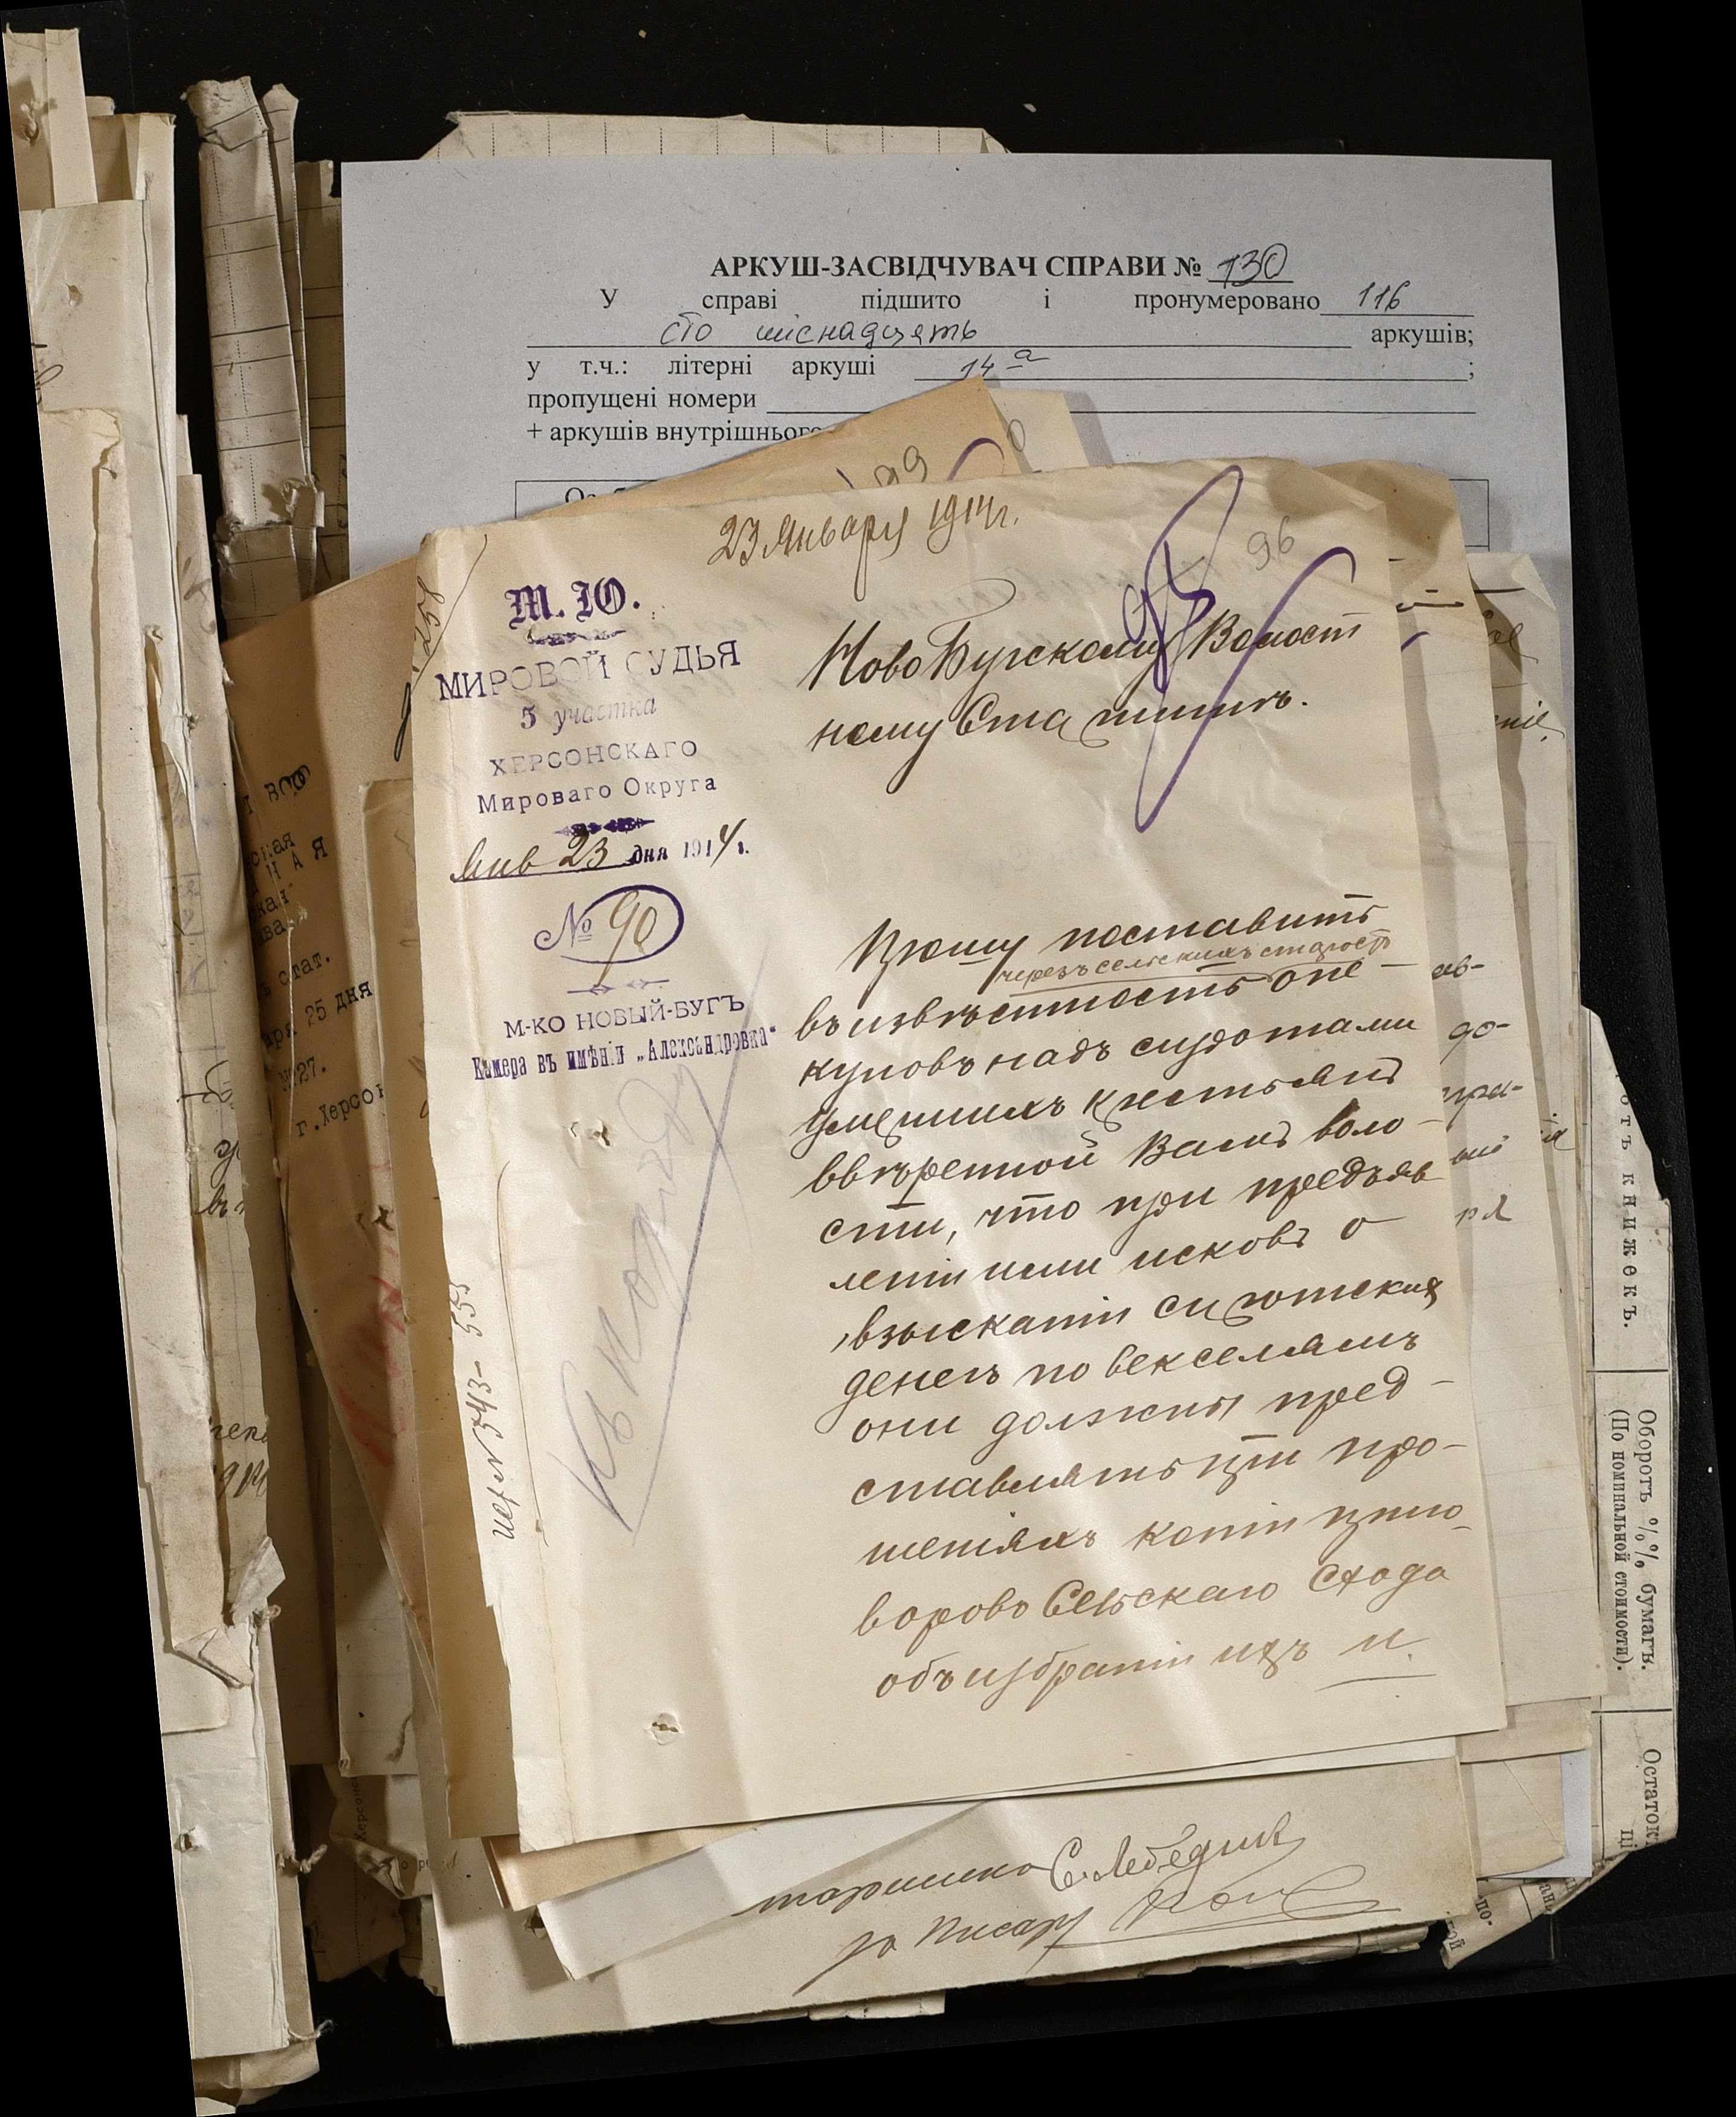 АРКУШ-ЗАСВІДЧУВАЧ СПРАВИ № 130
У справі підшито і пронумеровано 116
сто шіснадцять аркушів;
у т.ч.: літерні аркуші 14а ;
пропущені номери
+ аркушів внутрішнього
99
23 Января 1914 г.
96
258
М. Ю.
МИРОВОЙ СУДЬЯ
5 участка
ХЕРСОНСКАГО
Мирового Округа
Янв 23 дня 1914 г.
№ 90
М-КО НОВЫЙ-БУГЪ
Камера въ имѣніи „Александровка“
НовоБугскому Волост
ному Старшинѣ.
Прошу поставить
черезъ сельскихъ старостъ
въ извѣстность опе-
куновъ надъ сиротами
умершихъ крестьянъ
ввѣренной Вамъ воло-
сти, что при предъяв
леніи ими исковъ о
взысканіи сиротскихъ
денегъ по векселямъ
они должны пред-
ставлять при про-
шеніяхъ копіи приго-
воровъ Сельскаго Схода
объ избраніи ихъ и.
№ 543-555
старшина С. Лебедин
за Писаря
стат.
25 дня
№27.
г. Херсон
отъ книжекъ.
Оборотъ %% бумагъ.
(По номинальной стоимости).
Остатокъ